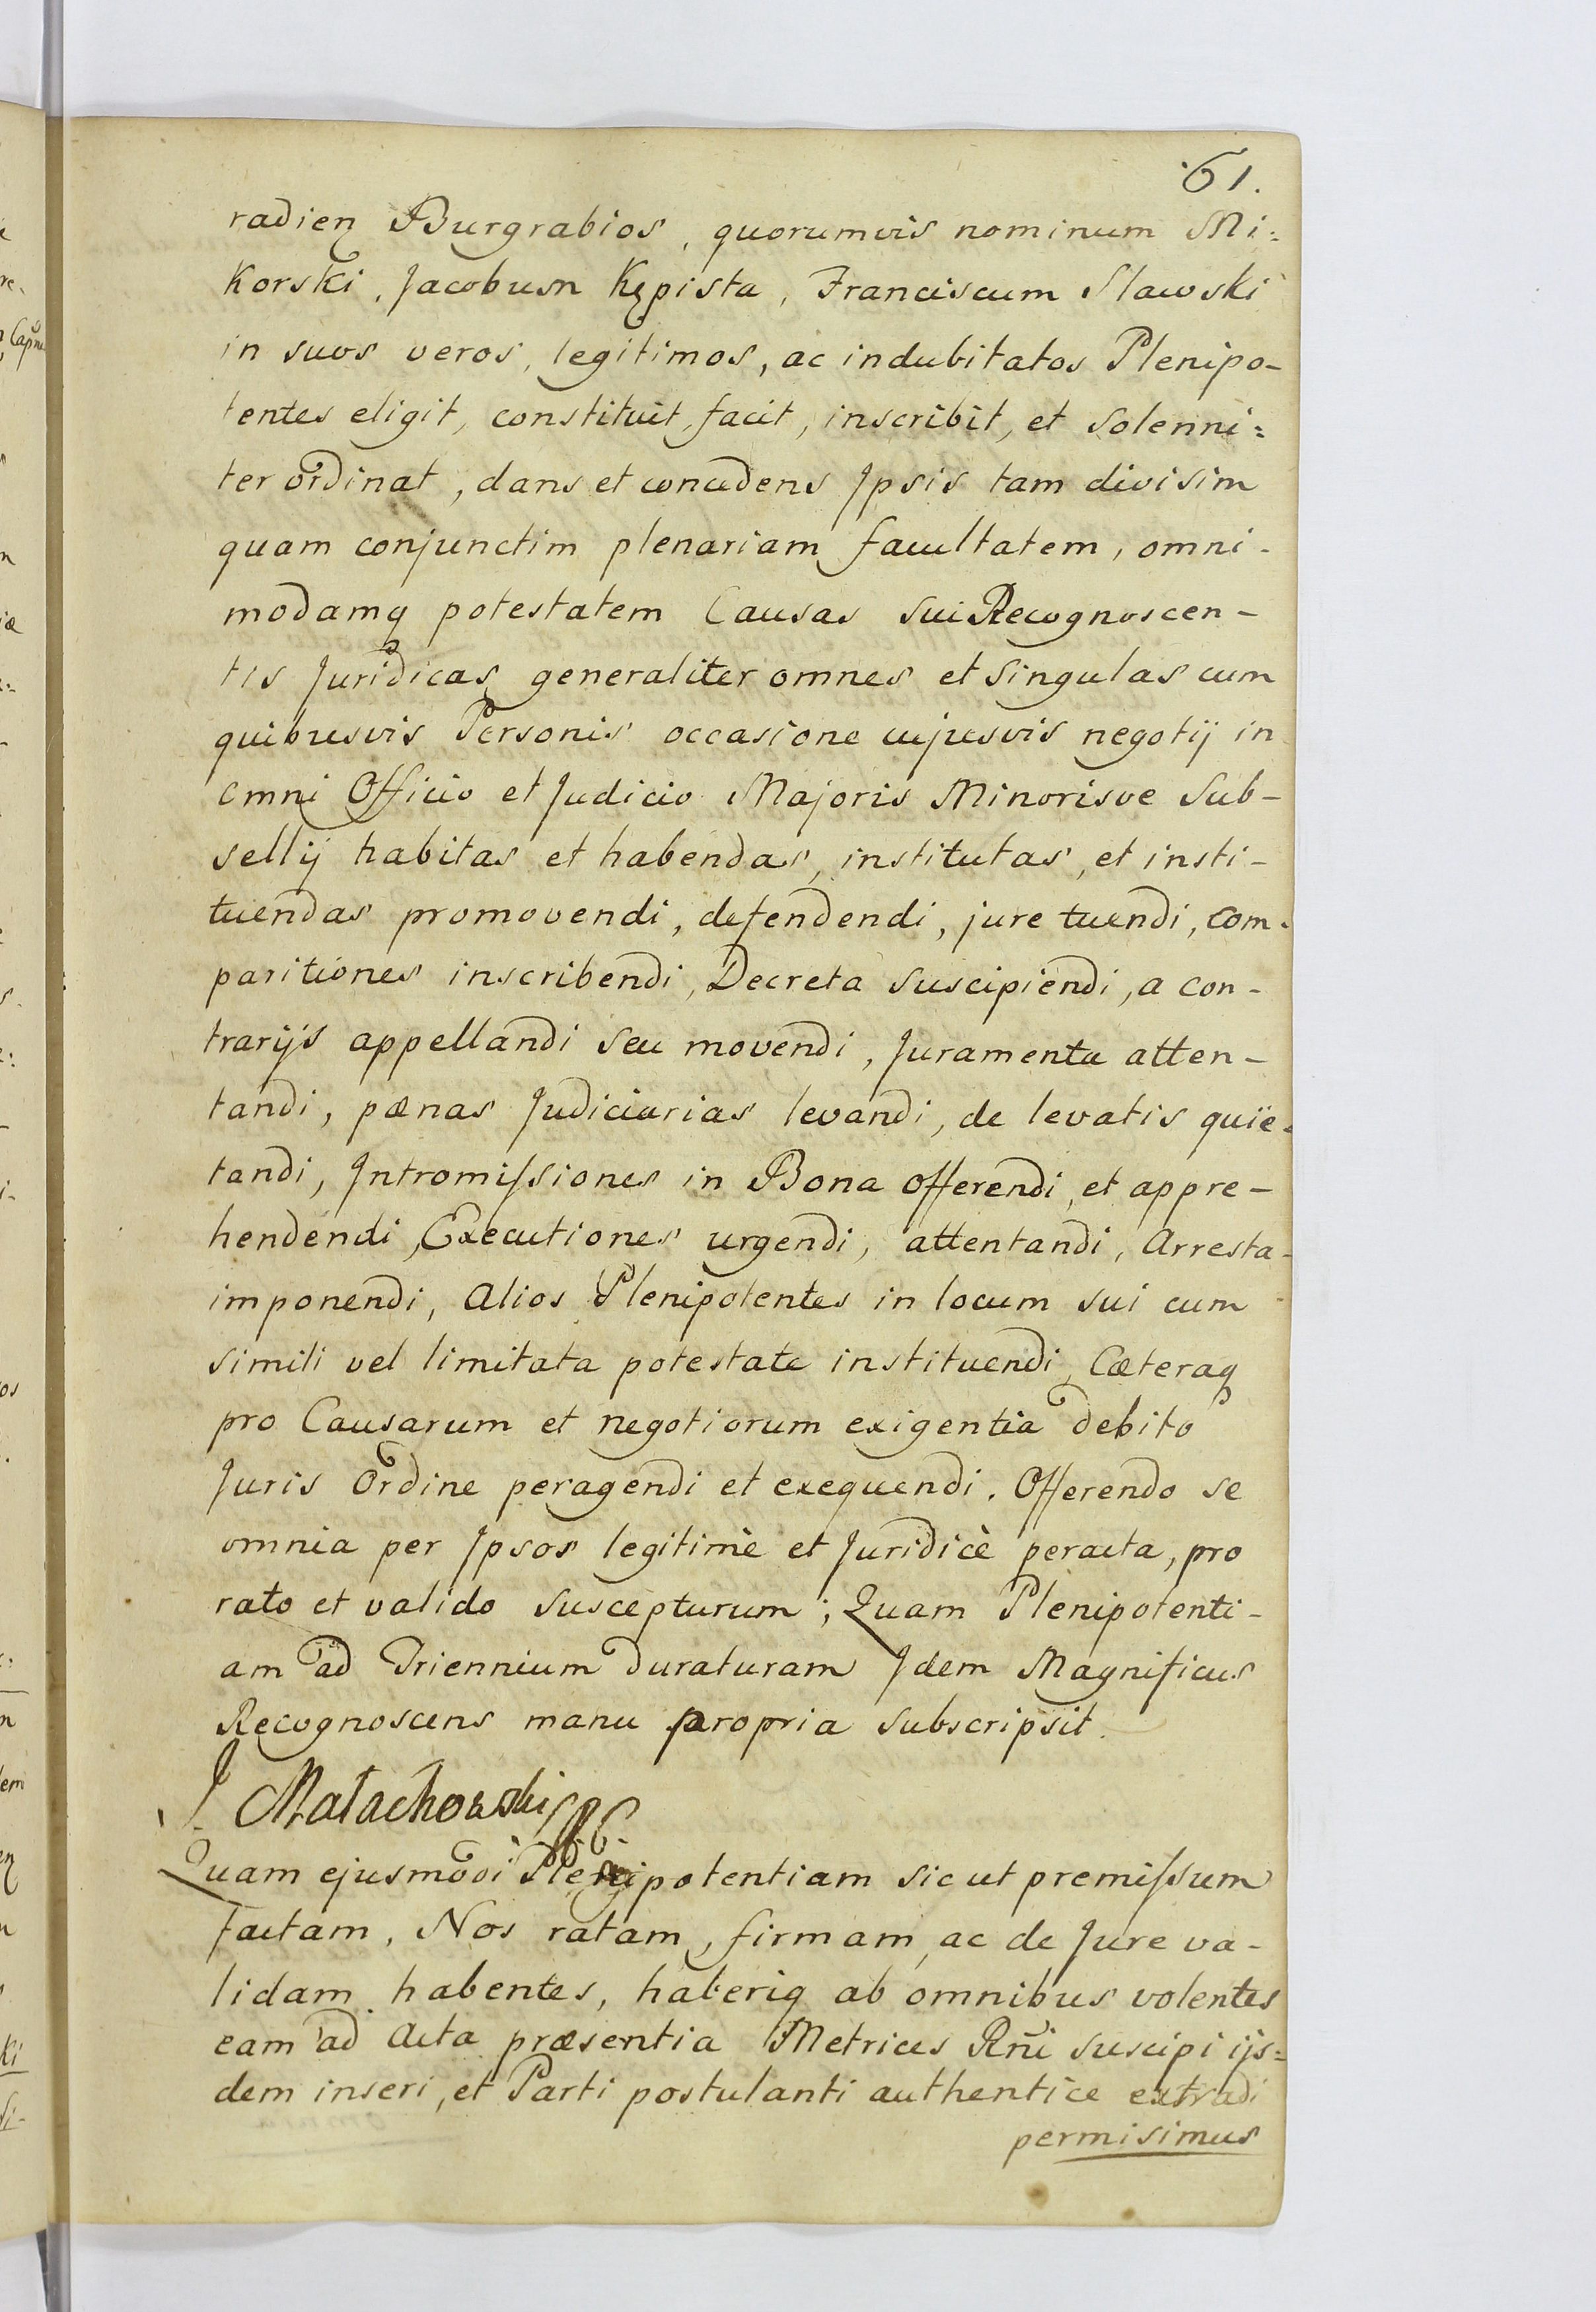 61.
radien Burgrabios, quorumvis nominum Mi=
Korski, Jacobum Kępista, Franciscum Slawski
in suos veros, legitimos, ac indubitatos Plenipo-
tentes eligit, constituit, facit, inscribit, et solenni=
ter ordinat, dans et concedens Ipsis tam divisim
quam conjunctim plenariam facultatem, omni-
modamq potestatem Causas sui Recognoscen-
tis Juridicas generaliter omnes et singulas cum
quibusvis Personis occasione cujusvis negotij in
omni Officio et Judicio Majoris Minorisve Sub-
sellij habitas et habendas, institutas, et insti-
tuendas promovendi, defendendi, jure tuendi, com-
paritiones inscribendi, Decreta suscipiendi, a con-
trarijs appellandi seu movendi, Juramenta atten-
tandi, pænas Judiciarias levandi, de levatis quie-
tandi, Intromissiones in Bona offerendi, et appre-
hendendi, Executiones urgendi, attentandi, Arresta-
imponendi, Alios Plenipotentes in locum sui cum
simili vel limitata potestate instituendi, Cæteraq
pro Causarum et negotiorum exigentia debito
Juris Ordine peragendi et exequendi. Offerendo se
omnia per Ipsos legitimè et Juridicè peracta, pro
rato et valido suscepturum; Quam Plenipotenti-
am ad Triennium duraturam Idem Magnificus
Recognoscens manu propria subscripsit.
J. Małachowski
Quam ejusmodi Plenipotentiam sic ut premissum
factam, Nos ratam, firmam, ac de Jure va-
lidam habentes, haberiq ab omnibus volentes
eam ad Acta præsentia Metrices Rñi suscipi ijs=
dem inseri, et Parti postulanti authentice extradi
permisimus